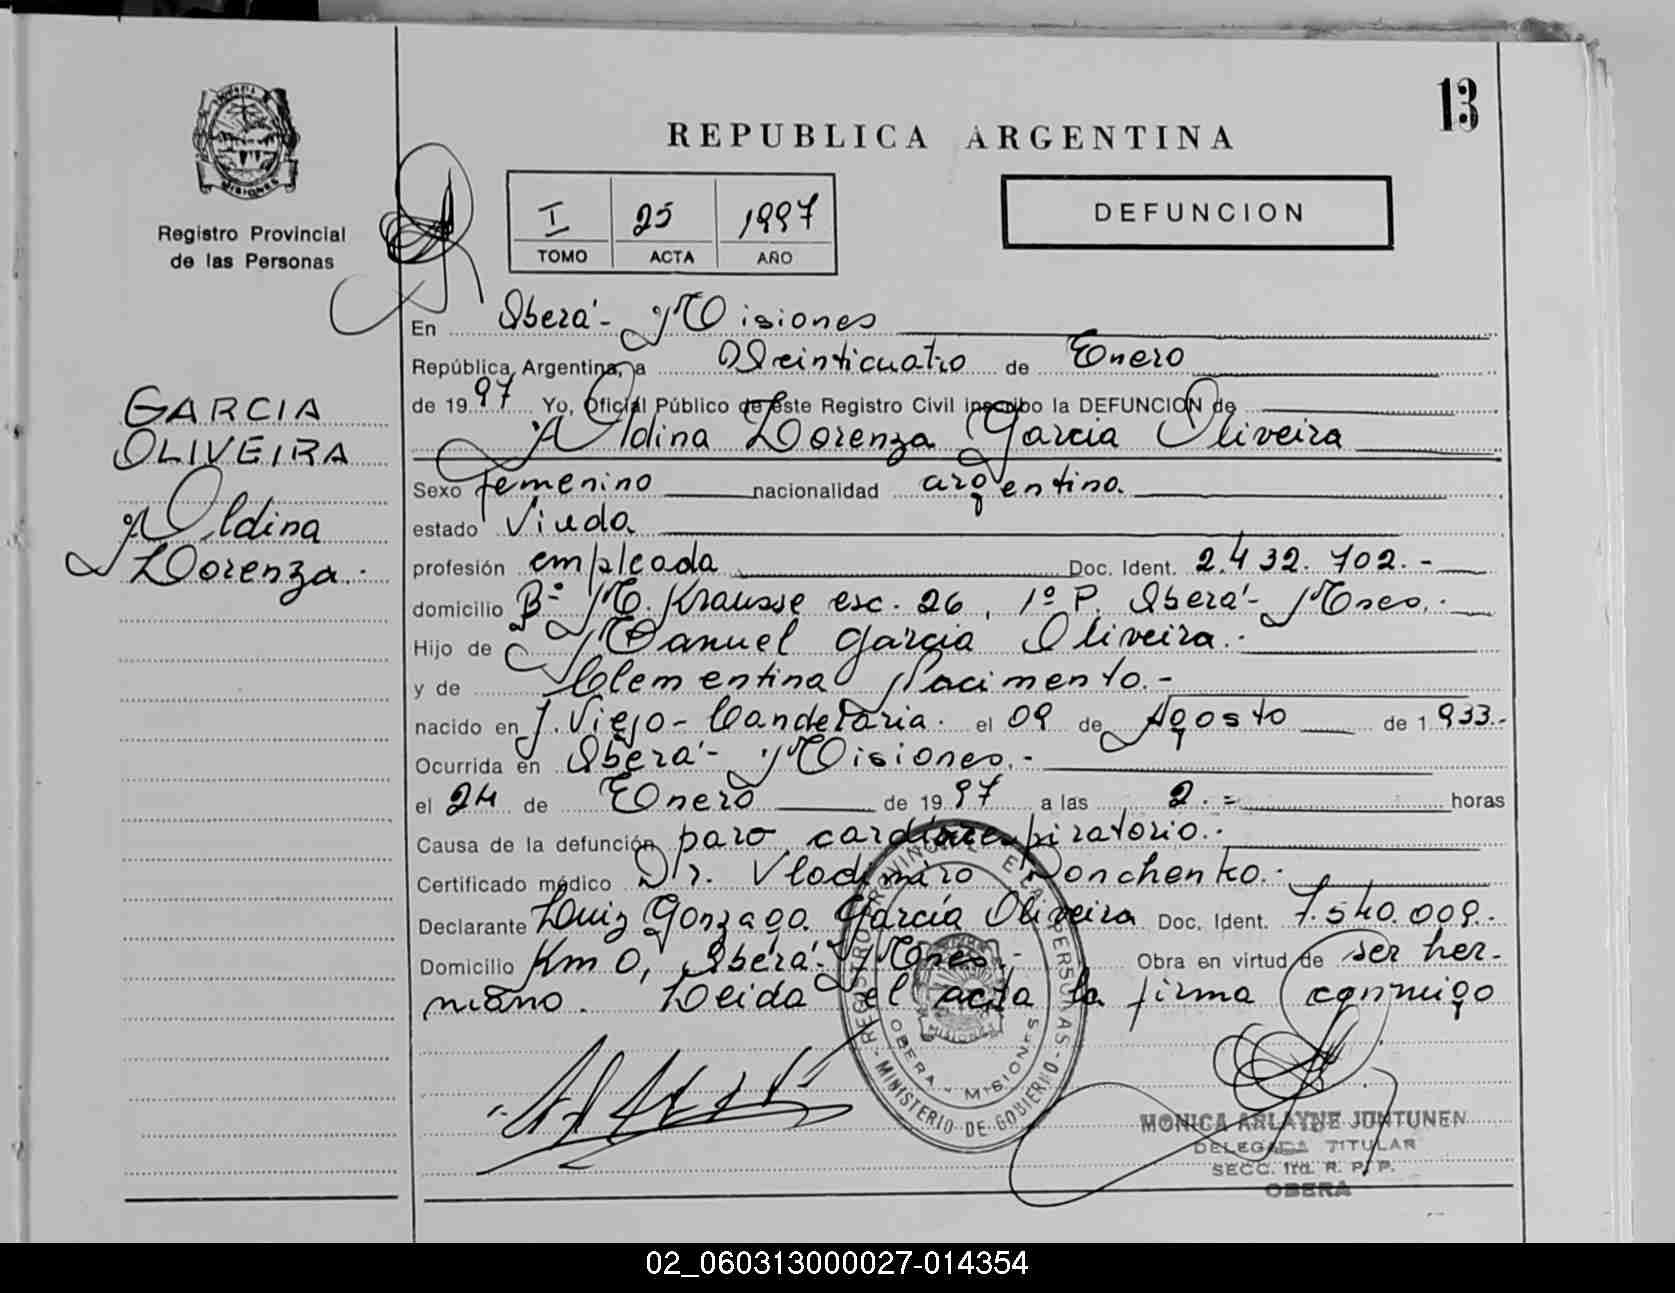 13
REPUBLICA ARGENTINA
MISIONES
Registro Provincial
de las Personas
I 25 1997
TOMO ACTA AÑO
DEFUNCION
GARCIA
OLIVEIRA
Aldina
Lorenza.-
En Oberá - Misiones
República Argentina, a Veinticuatro de Enero
de 1997 Yo, Oficial Público de este Registro Civil inscribo la DEFUNCION de
Aldina Lorenza Garcia Oliveira
Sexo femenino nacionalidad argentina.
estado Viuda
profesión empleada Doc. Ident. 2.432.702.-
domicilio Bº M. Krausse esc. 26, 1º P. Oberá - Mnes.-
Hijo de Manuel Garcia Oliveira.-
y de Clementina Nacimento.-
nacido en J. Viejo - Candelaria. el 09 de Agosto de 1.933.-
Ocurrida en Oberá - Misiones.-
el 24 de Enero de 1997 a las 2.= horas
Causa de la defunción paro cardiorespiratorio.-
Certificado médico Dr. Vladimiro Ponchenko.-
Declarante Luiz Gonzaga García Oliveira Doc. Ident. 7.540.009.-
Domicilio Km 0, Oberá - Mnes.- Obra en virtud de ser her-
mano. Leida el acta la firma conmigo
REGISTRO PROVINCIAL DE LAS PERSONAS - MINISTERIO DE GOBIERNO
OBERA - MISIONES
MISIONES
MONICA ARLAYNE JUNTUNEN
DELEGADA TITULAR
SECC. 1ra. R. P. P.
OBERA
02_060313000027-014354